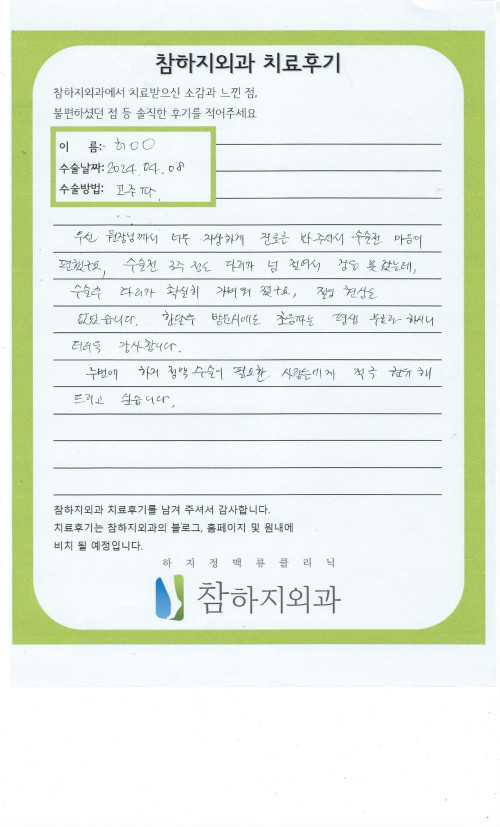 참하지외과 치료후기
참하지외과에서 치료받으신 소감과 느낀 점,
불편하셨던 점 등 솔직한 후기를 적어주세요
이 름: 허OO
수술날짜: 2024. 04. 08
수술방법: 고주파.
우선 원장님께서 너무 자상하게 진료를 봐주셔서 수술전 마음이
편했구요, 수술전 3주 정도 다리가 넘 저려서 잠을 못 잤는데,
수술후 다리가 확실히 가벼워 졌구요, 저림 현상도
없었습니다. 한달후 방문시에도 초음파는 평생 무료라 하시니
더더욱 감사합니다.
주변에 하지 정맥 수술이 필요한 사람들에게 적극 권유 해
드리고 싶습니다.
참하지외과 치료후기를 남겨 주셔서 감사합니다.
치료후기는 참하지외과의 블로그, 홈페이지 및 원내에
비치 될 예정입니다.
하지정맥류클리닉
참하지외과